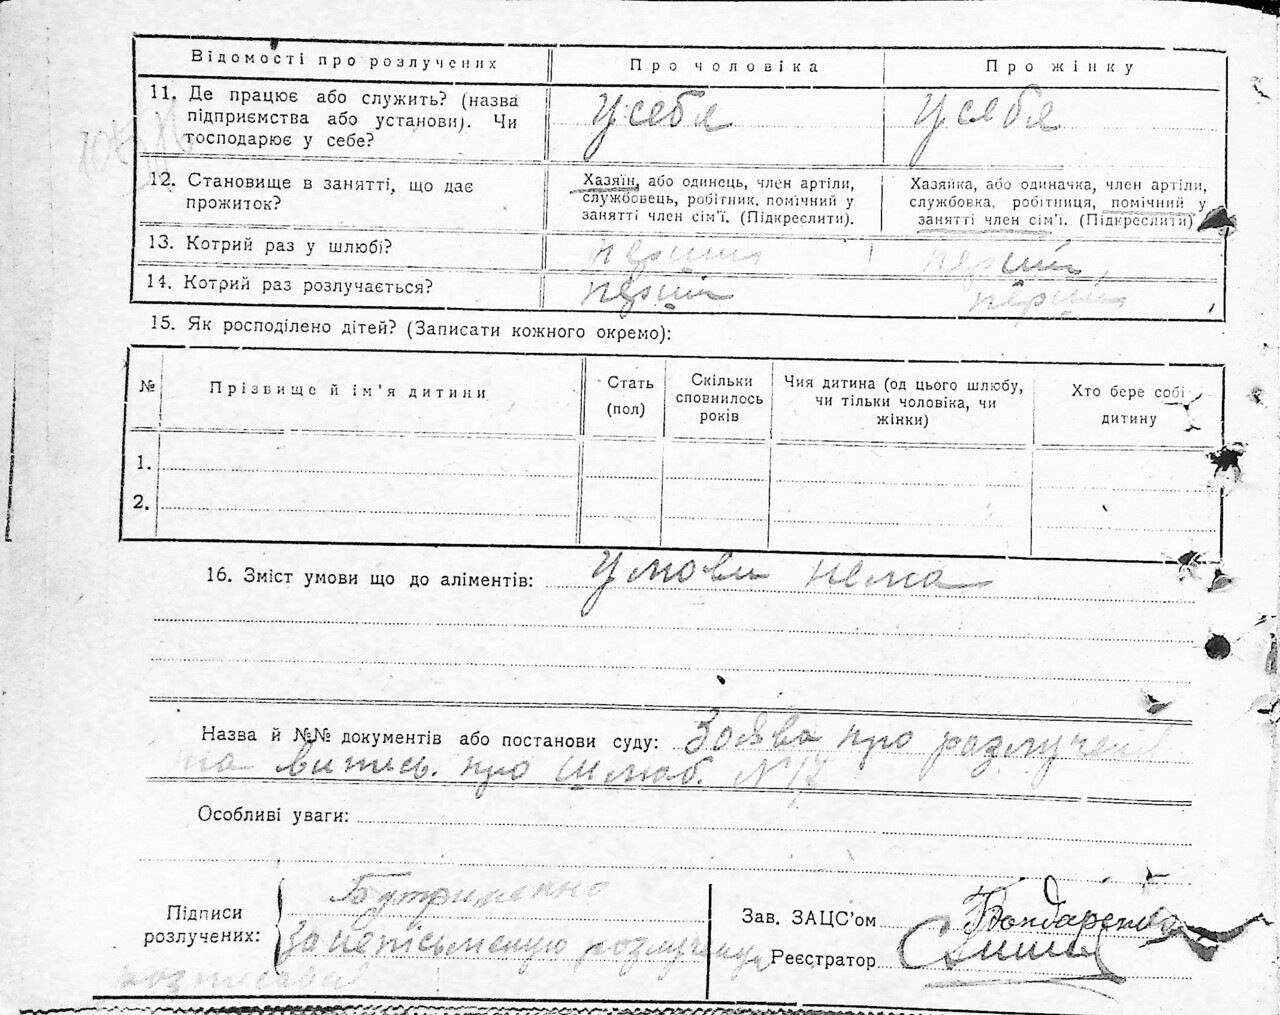 Відомості про розлучених
Про чоловіка
Про жінку
11. Де працює або служить? (назва
підприємства або установи). Чи
господарює у себе?
у себе
у себе
12. Становище в занятті, що дає
прожиток?
Хазяїн, або одинець, член артілі,
службовець, робітник, помічний у
занятті член сім'ї. (Підкреслити).
Хазяйка, або одиначка, член артілі,
службовка, робітниця, помічний у
занятті член сім'ї. (Підкреслити)
13. Котрий раз у шлюбі?
перший
перший
14. Котрий раз розлучається?
перший
перший
15. Як росподілено дітей? (Записати кожного окремо):
№
Прізвище й ім'я дитини
Стать
(пол)
Скільки
сповнилось
років
Чия дитина (од цього шлюбу,
чи тільки чоловіка, чи
жінки)
Хто бере собі
дитину
1.
2.
16. Зміст умови що до аліментів: Умови нема
Назва й №№ документів або постанови суду: Заява про разлучення
та витись. про шлюб. N 17
Особливі уваги:
Підписи
розлучених:
За петисьменую розлучену
розписався
Зав. ЗАЦС'ом Бондаренко
Реєстратор